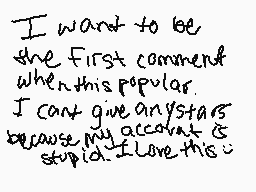 I want to be
the First comment
when this popular.
I cant give any stars
because my account is
stupid. I Love this ü